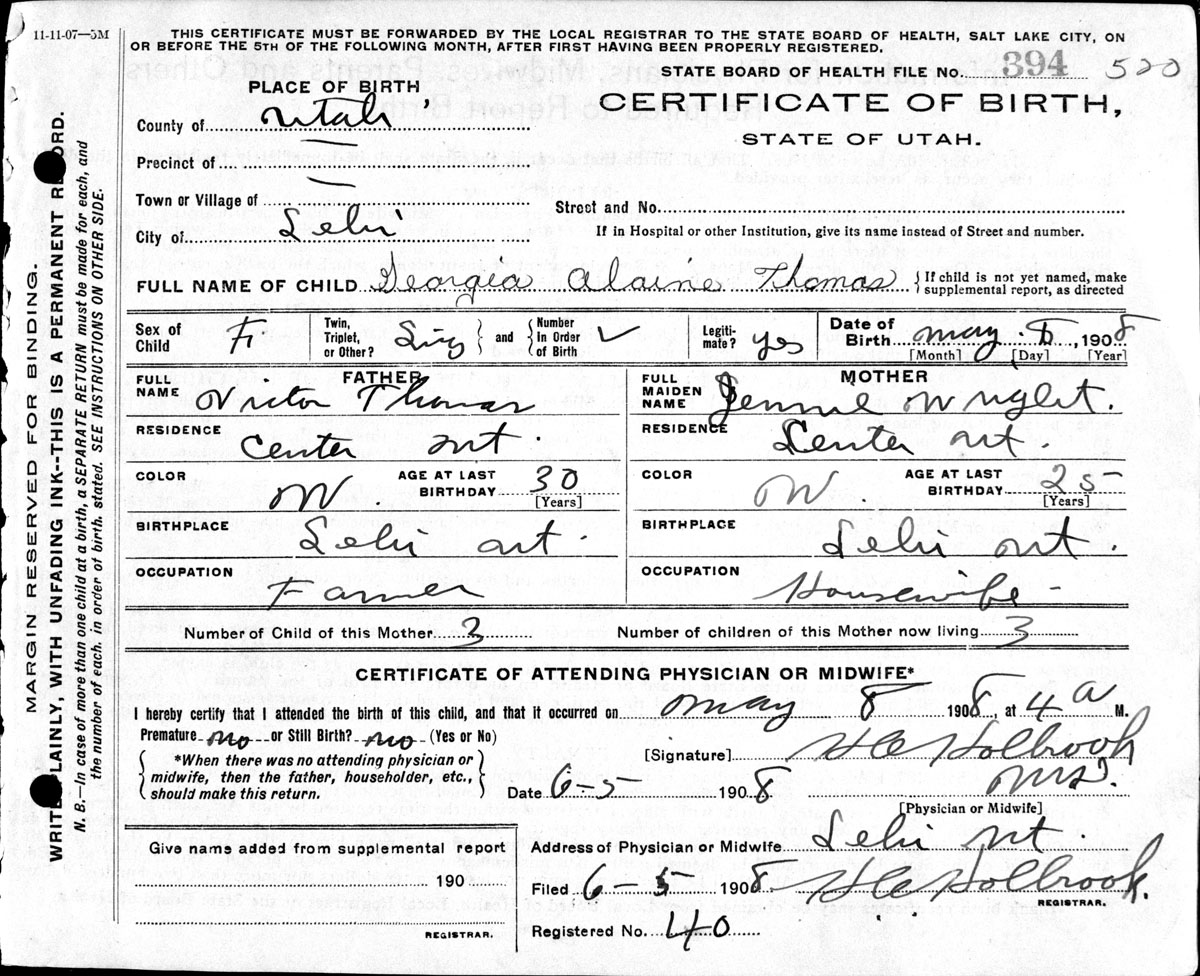 11-11-07—5M
THIS CERTIFICATE MUST BE FORWARDED BY THE LOCAL REGISTRAR TO THE STATE BOARD OF HEALTH, SALT LAKE CITY, ON
OR BEFORE THE 5TH OF THE FOLLOWING MONTH, AFTER FIRST HAVING BEEN PROPERLY REGISTERED.
STATE BOARD OF HEALTH FILE No. 394 520
PLACE OF BIRTH
CERTIFICATE OF BIRTH,
STATE OF UTAH.
County of Utah
Precinct of
Town or Village of
Street and No.
City of Lehi
If in Hospital or other Institution, give its name instead of Street and number.
FULL NAME OF CHILD Georgia Alaine Thomas { If child is not yet named, make
supplemental report, as directed
Sex of Child F. Twin, Triplet, or Other? Sing } and { Number In Order of Birth ✓ Legitimate? yes Date of Birth may 8, 1908
[Month] [Day] [Year]
FATHER MOTHER
FULL NAME Victor Thomas FULL MAIDEN NAME Jennie Wright.
RESIDENCE Center RESIDENCE Center
COLOR W. AGE AT LAST BIRTHDAY 30 COLOR W. AGE AT LAST BIRTHDAY 25
[Years] [Years]
BIRTHPLACE Lehi ut. BIRTHPLACE Lehi ut.
OCCUPATION Farmer OCCUPATION Housewife
Number of Child of this Mother 3 Number of children of this Mother now living 3
CERTIFICATE OF ATTENDING PHYSICIAN OR MIDWIFE*
I hereby certify that I attended the birth of this child, and that it occurred on may 8 1908, at 4 a M.
Premature no or Still Birth? no (Yes or No)
[Signature] Holbrook
*When there was no attending physician or
midwife, then the father, householder, etc.,
should make this return.
Date 6-5 1908
[Physician or Midwife]
Give name added from supplemental report
190
REGISTRAR.
Address of Physician or Midwife Lehi ut.
Filed 6-5 1908 Holbrook.
REGISTRAR.
Registered No. 40
MARGIN RESERVED FOR BINDING.
WRITE PLAINLY, WITH UNFADING INK--THIS IS A PERMANENT RECORD.
N. B.—In case of more than one child at a birth, a SEPARATE RETURN must be made for each, and
the number of each, in order of birth, stated. SEE INSTRUCTIONS ON OTHER SIDE.